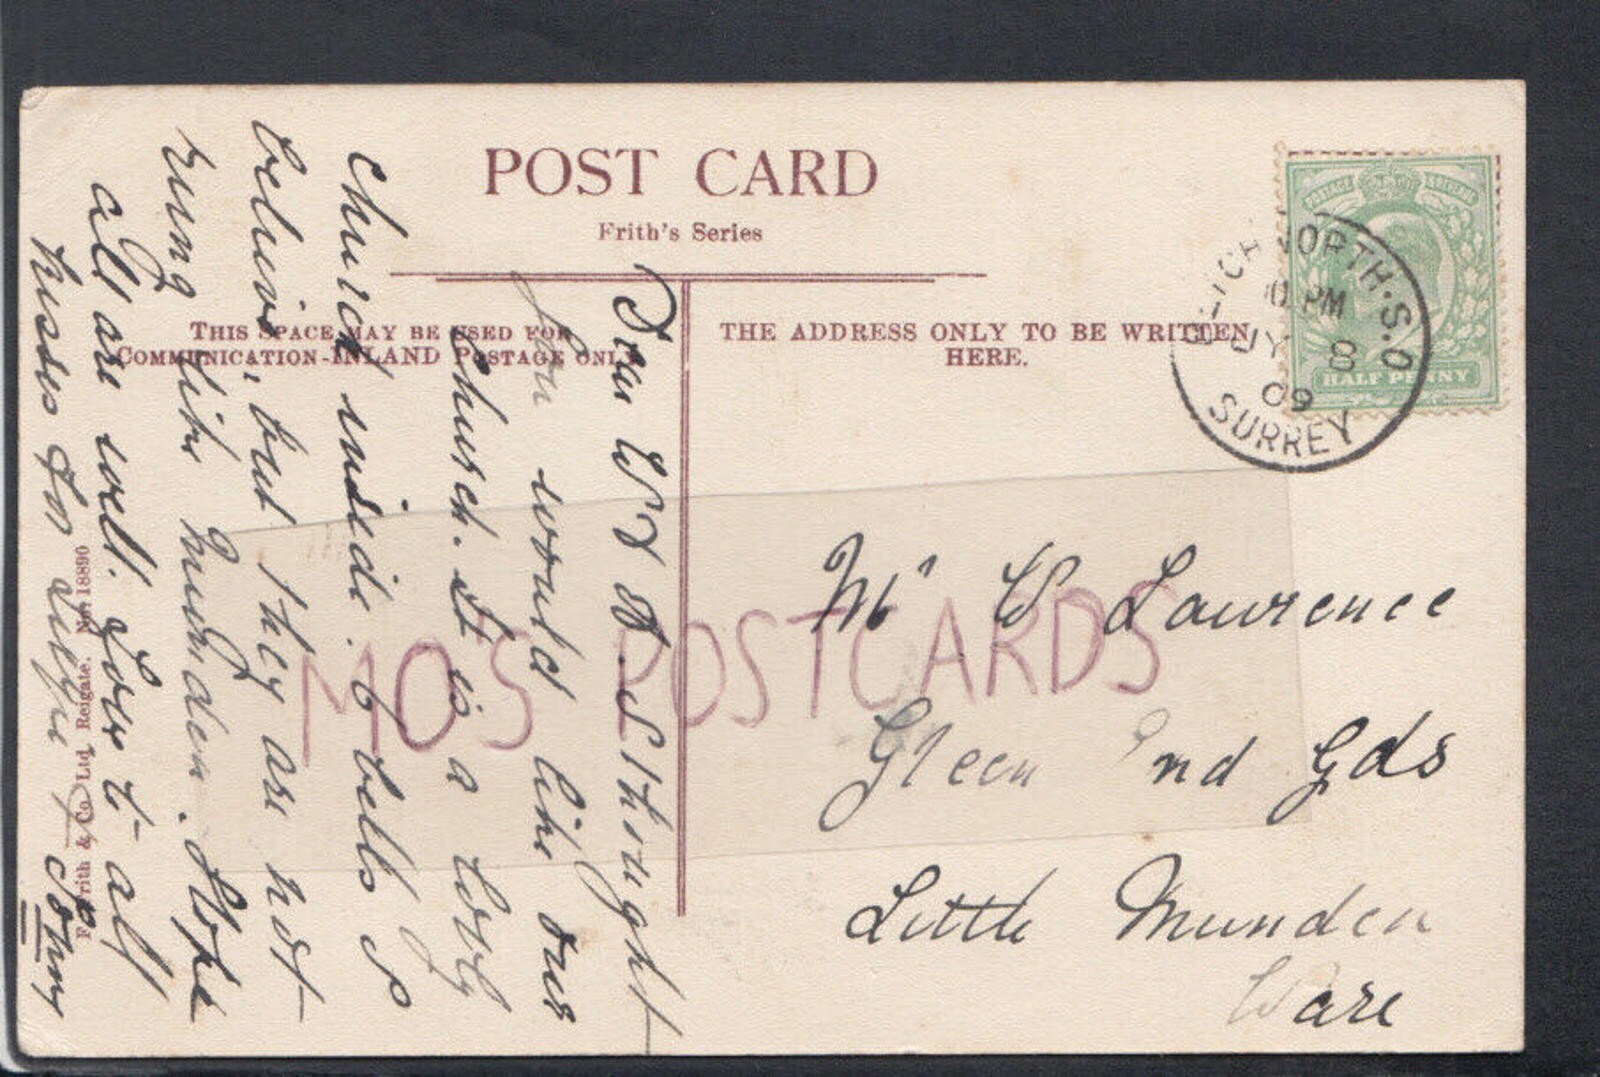 POST CARD
Frith's Series
THIS SPACE MAY BE USED FOR
COMMUNICATION-INLAND POSTAGE ONLY
THE ADDRESS ONLY TO BE WRITTEN
HERE.
POSTAGE REVENUE
HALF PENNY
NORTH.S.O
PM
JY 8
09
SURREY
Mr W Lawrence
Green End Gds
Little Munden
Ware
Dear W I thought
you would like our
church. It is a lovely
church inside. 6 bells &
, but they are not
rung like Munden. Hope
all are well. Love to all
kisses for Johny
F. Frith & Co. Ltd. Reigate. No. 18890
MO'S POSTCARDS